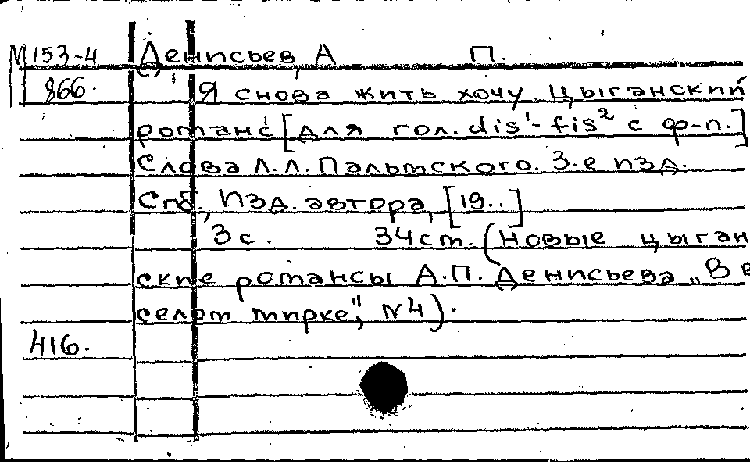 М153-4 Денисьев, А П.
866. Я снова жить хочу. Цыганский
романс [для гол. dis¹-fis² с ф-п.]
Слова Л.Л. Пальмского. 3-е изд.
Спб., Изд. автора, [19..]
3с. 34см. (Новые цыган
ские романсы А.П. Денисьева „В ве
селом мирке", №4).
416.